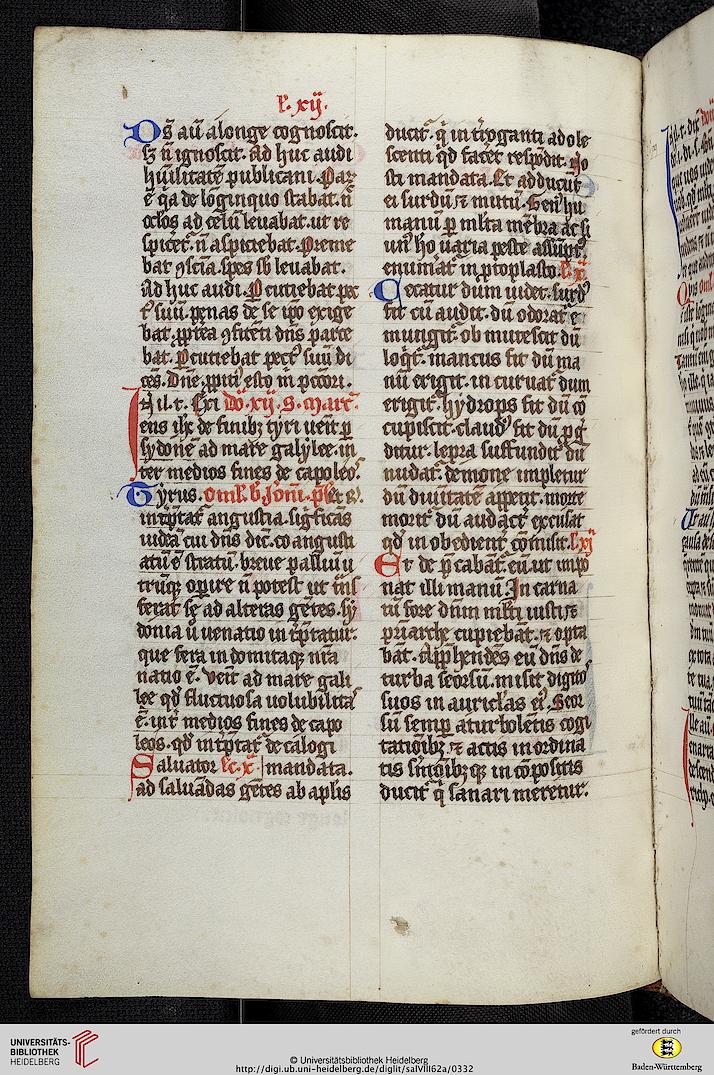 l'. xij.
Ds̄ aū alonge cognoscit.
sꝫ n̄ ignoscit. Ad huc audi
hūilitatē publicani. Par
ē q̄a de lōginquo stabat. n̄
oclos ad celū leuabat. ut re
spicet᷒. n̄ aspiciebat. Preme
bat ꝯsciā. spes sb leuabat.
Ad huc audi. Pcutiebat pec
t᷒ suū. penas de se ipo exige
bat. ꝓpt̾ea ꝯfitēti dn̄s parce
bat. Pcutiebat pect᷒ suū di
cēs. Dn̄e ꝓpiti᷒ esto m̄ pctōri.
In il. t. Exi Dō. xij. S. Marc̄.
iens ih̄c de finibꝫ tyri uenit ꝑ
sydonē ad mare galylee. in
ter medios fines de capoleos.
Tyrus. Oml'. b. Joh̄i. p̄sbit̾i.
int̾ptat᷒ angustia. sig̾ficās
iudeā cui dn̄s dic̄. coangusti
atū ē stratū. breue palliū u
trūqꝫ opire n̄ potest ut t̾ns
ferat se ad alteras gētes. Sy
donia ū uenatio int̾ptatur.
que fera indomitaqꝫ nr̄a
natio ē. Veīt ad mare gali
lee qd̾ fluctuosa uolubilitas
ē. int̾ medios fines de capo
leos. qd̾ int̾ptat᷒ decalogi
Saluator l'c. x. mandata.
ad saluādas gētes ab aplis
ducit᷒. q̄ int̾roganti adole
scenti qd̾ facet᷒ respōdit. No
sti mandata. Et adducūt
ei surdū ⁊ mutū. Gen᷒ hu
manū ꝑ ml̄ta mēbra ac si
un᷒ hō uaria peste assūpt᷒.
enumat᷒ in ptoplasto. l'. x.
Cecatur dum uidet. surd᷒
fit cū audit. dū odorat᷒ e
mungit᷒. ob mutescit dū
loq̄t᷒. mancus fit dū ma
nū erigit. incuruat᷒ dum
erigit᷒. hydrops fit dū cō
cupiscit. claud᷒ fit dū ꝓg̾
ditur. lepra suffundit᷒ dū
nudat᷒. demone impletur
dū diuītatē appetit. morte
morit᷒ dū audact̾ excusat
qd̾ inobedient̾ cōmisit. l'. xj
Et de pcabāt᷒ eū. ut impo
nat illi manū. In carna
tū fore dn̄m ml̄ti iusti ⁊
pr̄iarche cupiebāt. ⁊ opta
bāt. Apphendēs eū dn̄s de
turba seorsū. misit digitos
suos in auric̄las ei᷒. Seor
sū semp aturbolētis cogi
tatiōibꝫ. ⁊ actis inordina
tis s̾mōibꝫqꝫ incōpositis
ducit᷒ q̄ sanari meretur.
UNIVERSITÄTS-
BIBLIOTHEK
HEIDELBERG
© Universitätsbibliothek Heidelberg
http://digi.ub.uni-heidelberg.de/diglit/salVIII62a/0332
gefördert durch
Baden-Württemberg